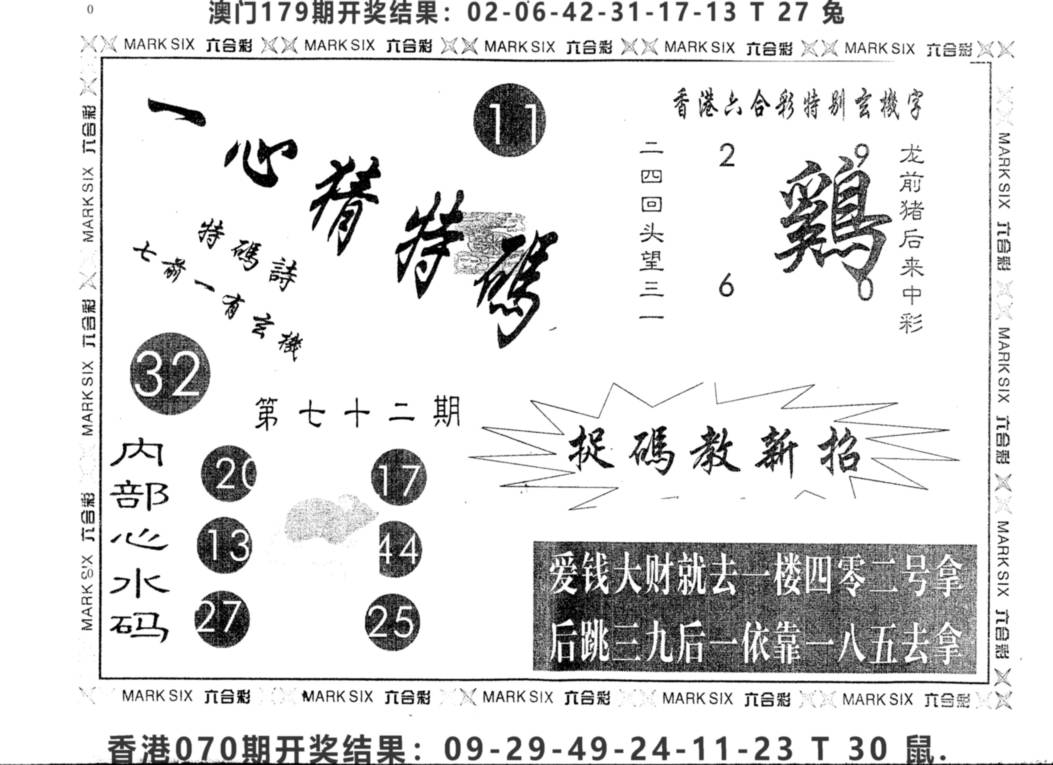 0
澳门179期开奖结果：02-06-42-31-17-13 T 27 兔
MARK SIX 六合彩 MARK SIX 六合彩 MARK SIX 六合彩 MARK SIX 六合彩 MARK SIX 六合彩
MARK SIX 六合彩 MARK SIX 六合彩 MARK SIX 六合彩
一心猜特碼
11
香港六合彩特别玄機字
特碼詩
七前一有玄機
二四回头望三一
2
6
9
鷄
0
龙前猪后来中彩
32
第七十二期
内部心水码
20
17
13
44
27
25
捉碼教新招
爱钱大财就去一楼四零二号拿
后跳三九后一依靠一八五去拿
MARK SIX 六合彩 MARK SIX 六合彩 MARK SIX 六合彩
MARK SIX 六合彩 MARK SIX 六合彩 MARK SIX 六合彩 MARK SIX 六合彩 MARK SIX 六合彩
香港070期开奖结果：09-29-49-24-11-23 T 30 鼠.